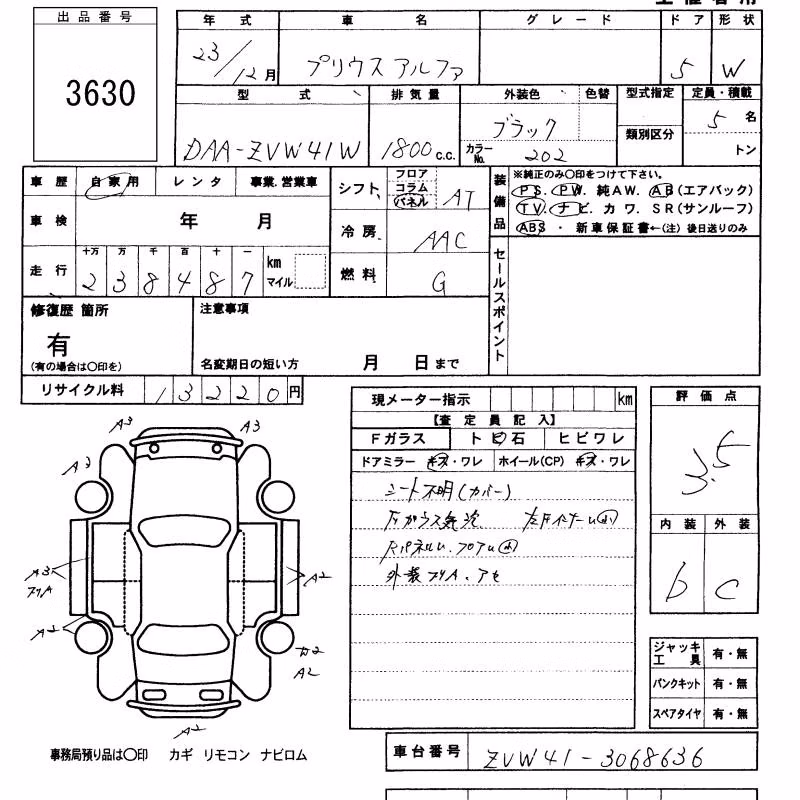 出品番号
3630
年式 車名 グレード ドア 形状
23/12月 プリウスアルファ 5 W
型式 排気量 外装色 色替 型式指定 定員・積載
DAA-ZVW41W 1800 c.c. ブラック 類別区分 5 名
カラーNo. 202 トン
車歴 自家用 レンタ 事業.営業車
シフト フロア コラム パネル AT
装備品
※純正のみ〇印をつけて下さい。
PS. PW. 純AW. AB(エアバック)
TV. ナビ. カワ. SR(サンルーフ)
ABS ・ 新車保証書←(注) 後日送りのみ
車検 年 月
冷房 AAC
走行 十万 万 千 百 十 一 km マイル
238487
燃料 G
セールスポイント
修復歴 箇所
有
(有の場合は〇印を)
注意事項
名変期日の短い方 月 日まで
リサイクル料 13220円
現メーター指示 km
【査定員記入】
Fガラス トビ石 ヒビワレ
ドアミラー キズ・ワレ ホイール(CP) キズ・ワレ
シート不明(カバー)
外装
評価点
3.5
内装 外装
b c
A3 A3
A3
A3
A2
A2
A2
A2
ジャッキ工具 有・無
パンクキット 有・無
スペアタイヤ 有・無
事務局預り品は〇印 カギ リモコン ナビロム
車台番号 ZVW41-3068636